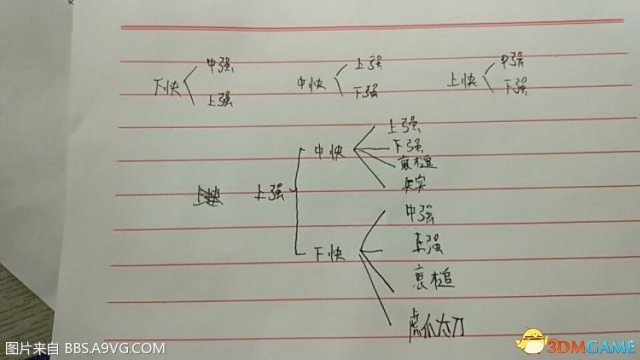 下快 中强 上强
中快 上强 下强
上快 中强 下强
上强
中快
上强
下强
裏槌
失突
下快
中强
上强
裏槌
虎爪太刀
图片来自 BBS.A9VG.COM
3DMGAME